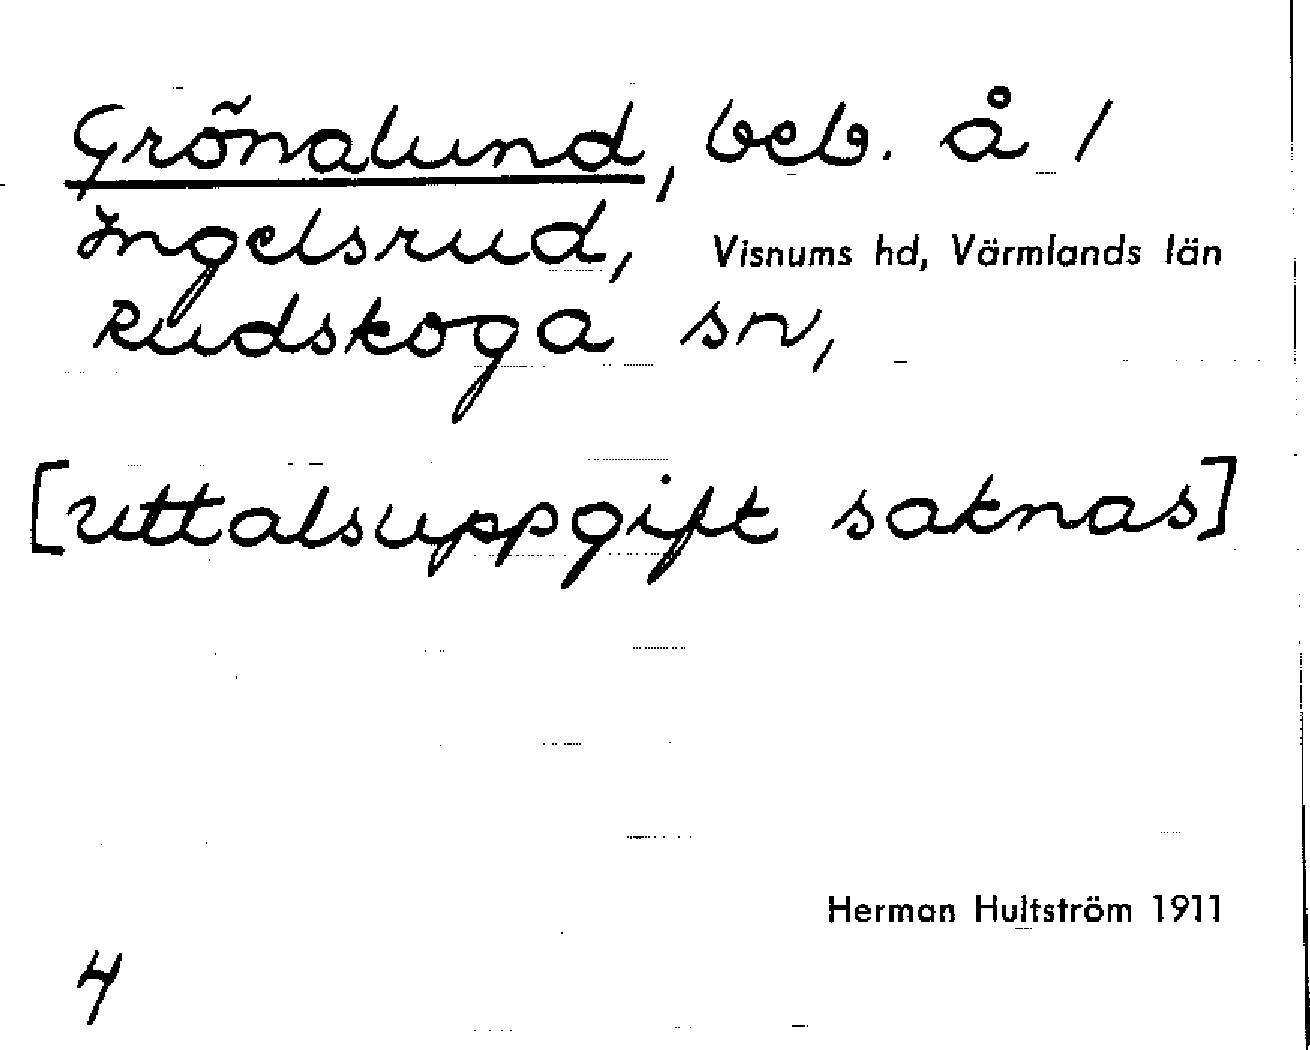 Grönalund, beb. å /
Ingelsrud, Visnums hd, Värmlands län
Rudskoga sn,
[Uttalsuppgift saknas]
Herman Hultström 1911
4